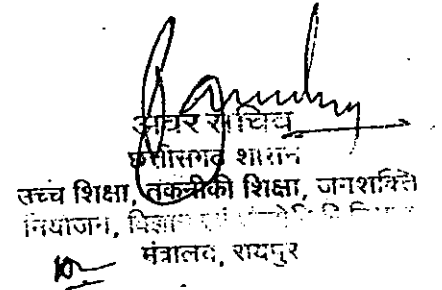 अवर सचिव
छत्तीसगढ़ शासन
उच्च शिक्षा, तकनीकी शिक्षा, जनशक्ति
नियोजन, विज्ञान एवं
मंत्रालय, रायपुर